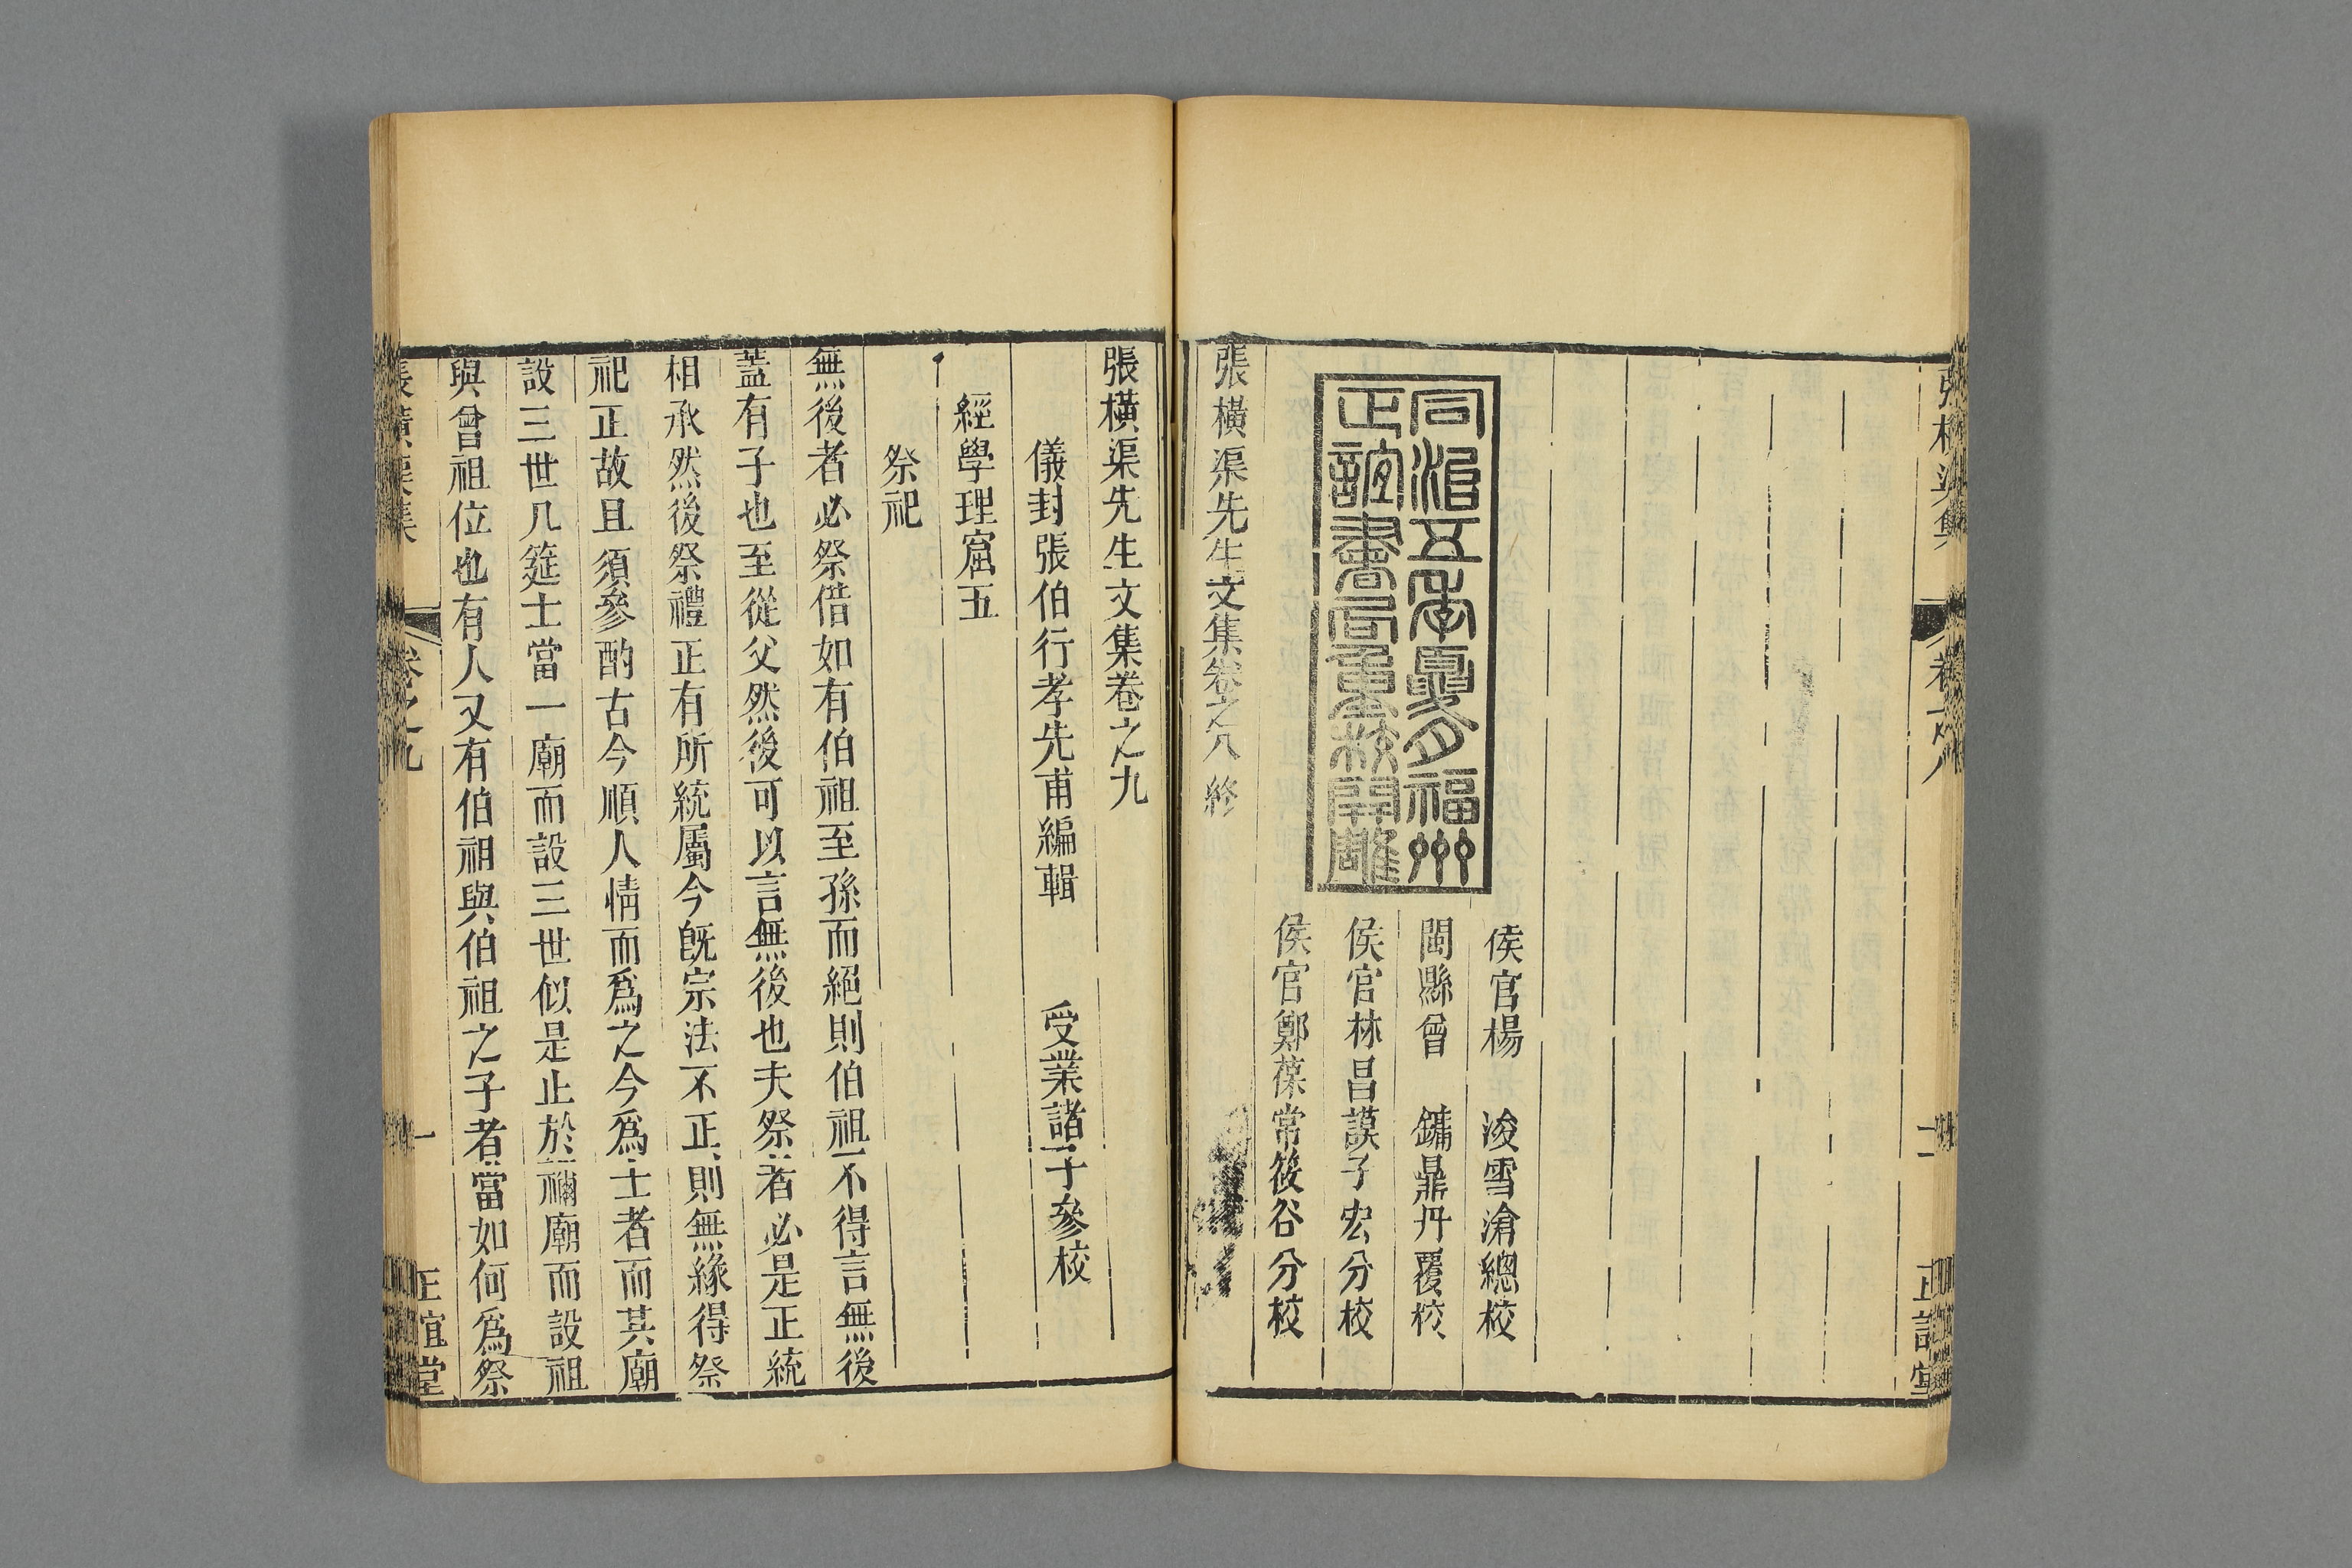 張橫渠集
卷之八
正誼堂
同治五年夏月福州
正誼書局重校開雕
侯官楊 浚雪滄總校
閩縣曾 鏞鼎丹覆校
侯官林昌謨子宏分校
侯官鄭葆常筱谷分校
張橫渠先生文集卷之八終
張橫渠先生文集卷之九
儀封張伯行孝先甫編輯 受業諸子參校
經學理窟五
祭祀
無後者必祭借如有伯祖至孫而絕則伯祖不得言無後
蓋有子也至從父然後可以言無後也夫祭者必是正統
相承然後祭禮正有所統屬今旣宗法不正則無緣得祭
祀正故且須參酌古今順人情而爲之今爲士者而其廟
設三世几筵士當一廟而設三世似是止於禰廟而設祖
與曾祖位也有人又有伯祖與伯祖之子者當如何爲祭
張橫渠集
卷之九
一
正誼堂